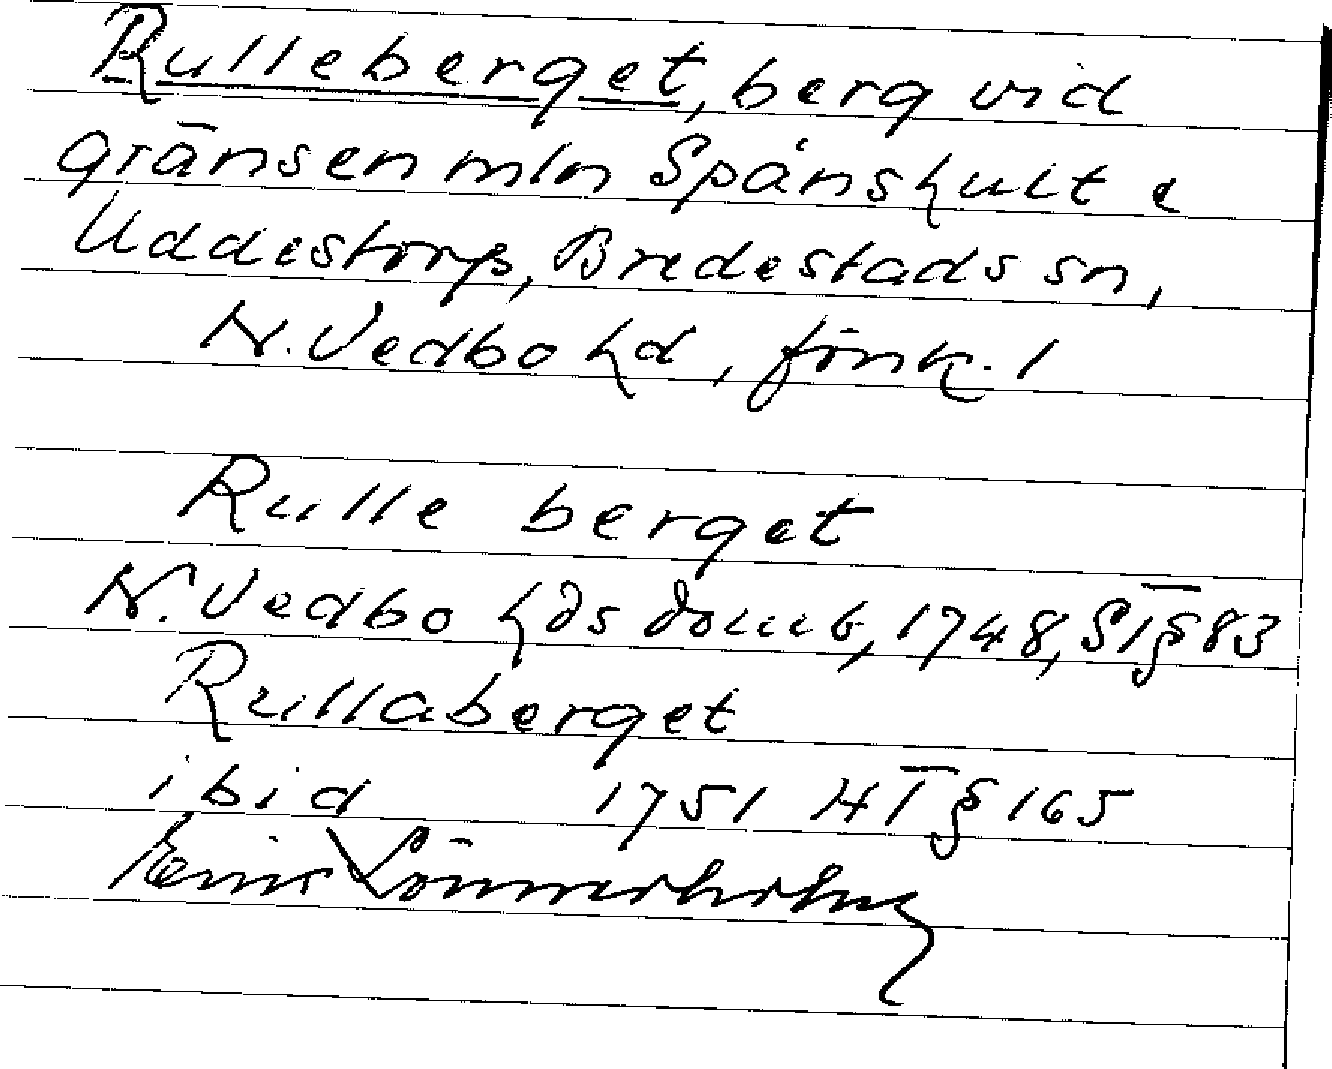 Rulleberget, berg vid
gränsen mln Spånshult e
Uddestorp, Bredestads sn,
N. Vedbo hd, Jönk. l
Rulle berget
N. Vedbo hds domb, 1748, S T § 83
Rullaberget
ibid 1751 HT § 165
Einar Lönnerholm